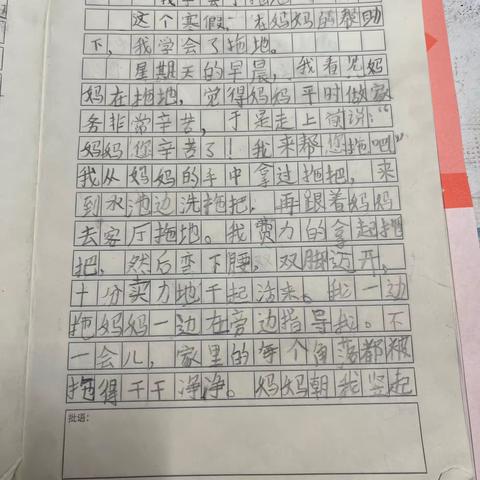 我学会了拖地
这个寒假,在妈妈的帮助
下,我学会了拖地。
星期天的早晨,我看见妈
妈在拖地,觉得妈妈平时做家
务非常辛苦,于是走上前说:“
妈妈您辛苦了!我来帮您拖吧”
我从妈妈的手中拿过拖把,来
到水池边洗拖把,再跟着妈妈
去客厅拖地。我费力的拿起拖
把,然后弯下腰,双脚迈开,
十分卖力地干起活来。我一边
拖妈妈一边在旁边指导我。不
一会儿,家里的每个角落都被
拖得干干净净。妈妈朝我竖起
批语: